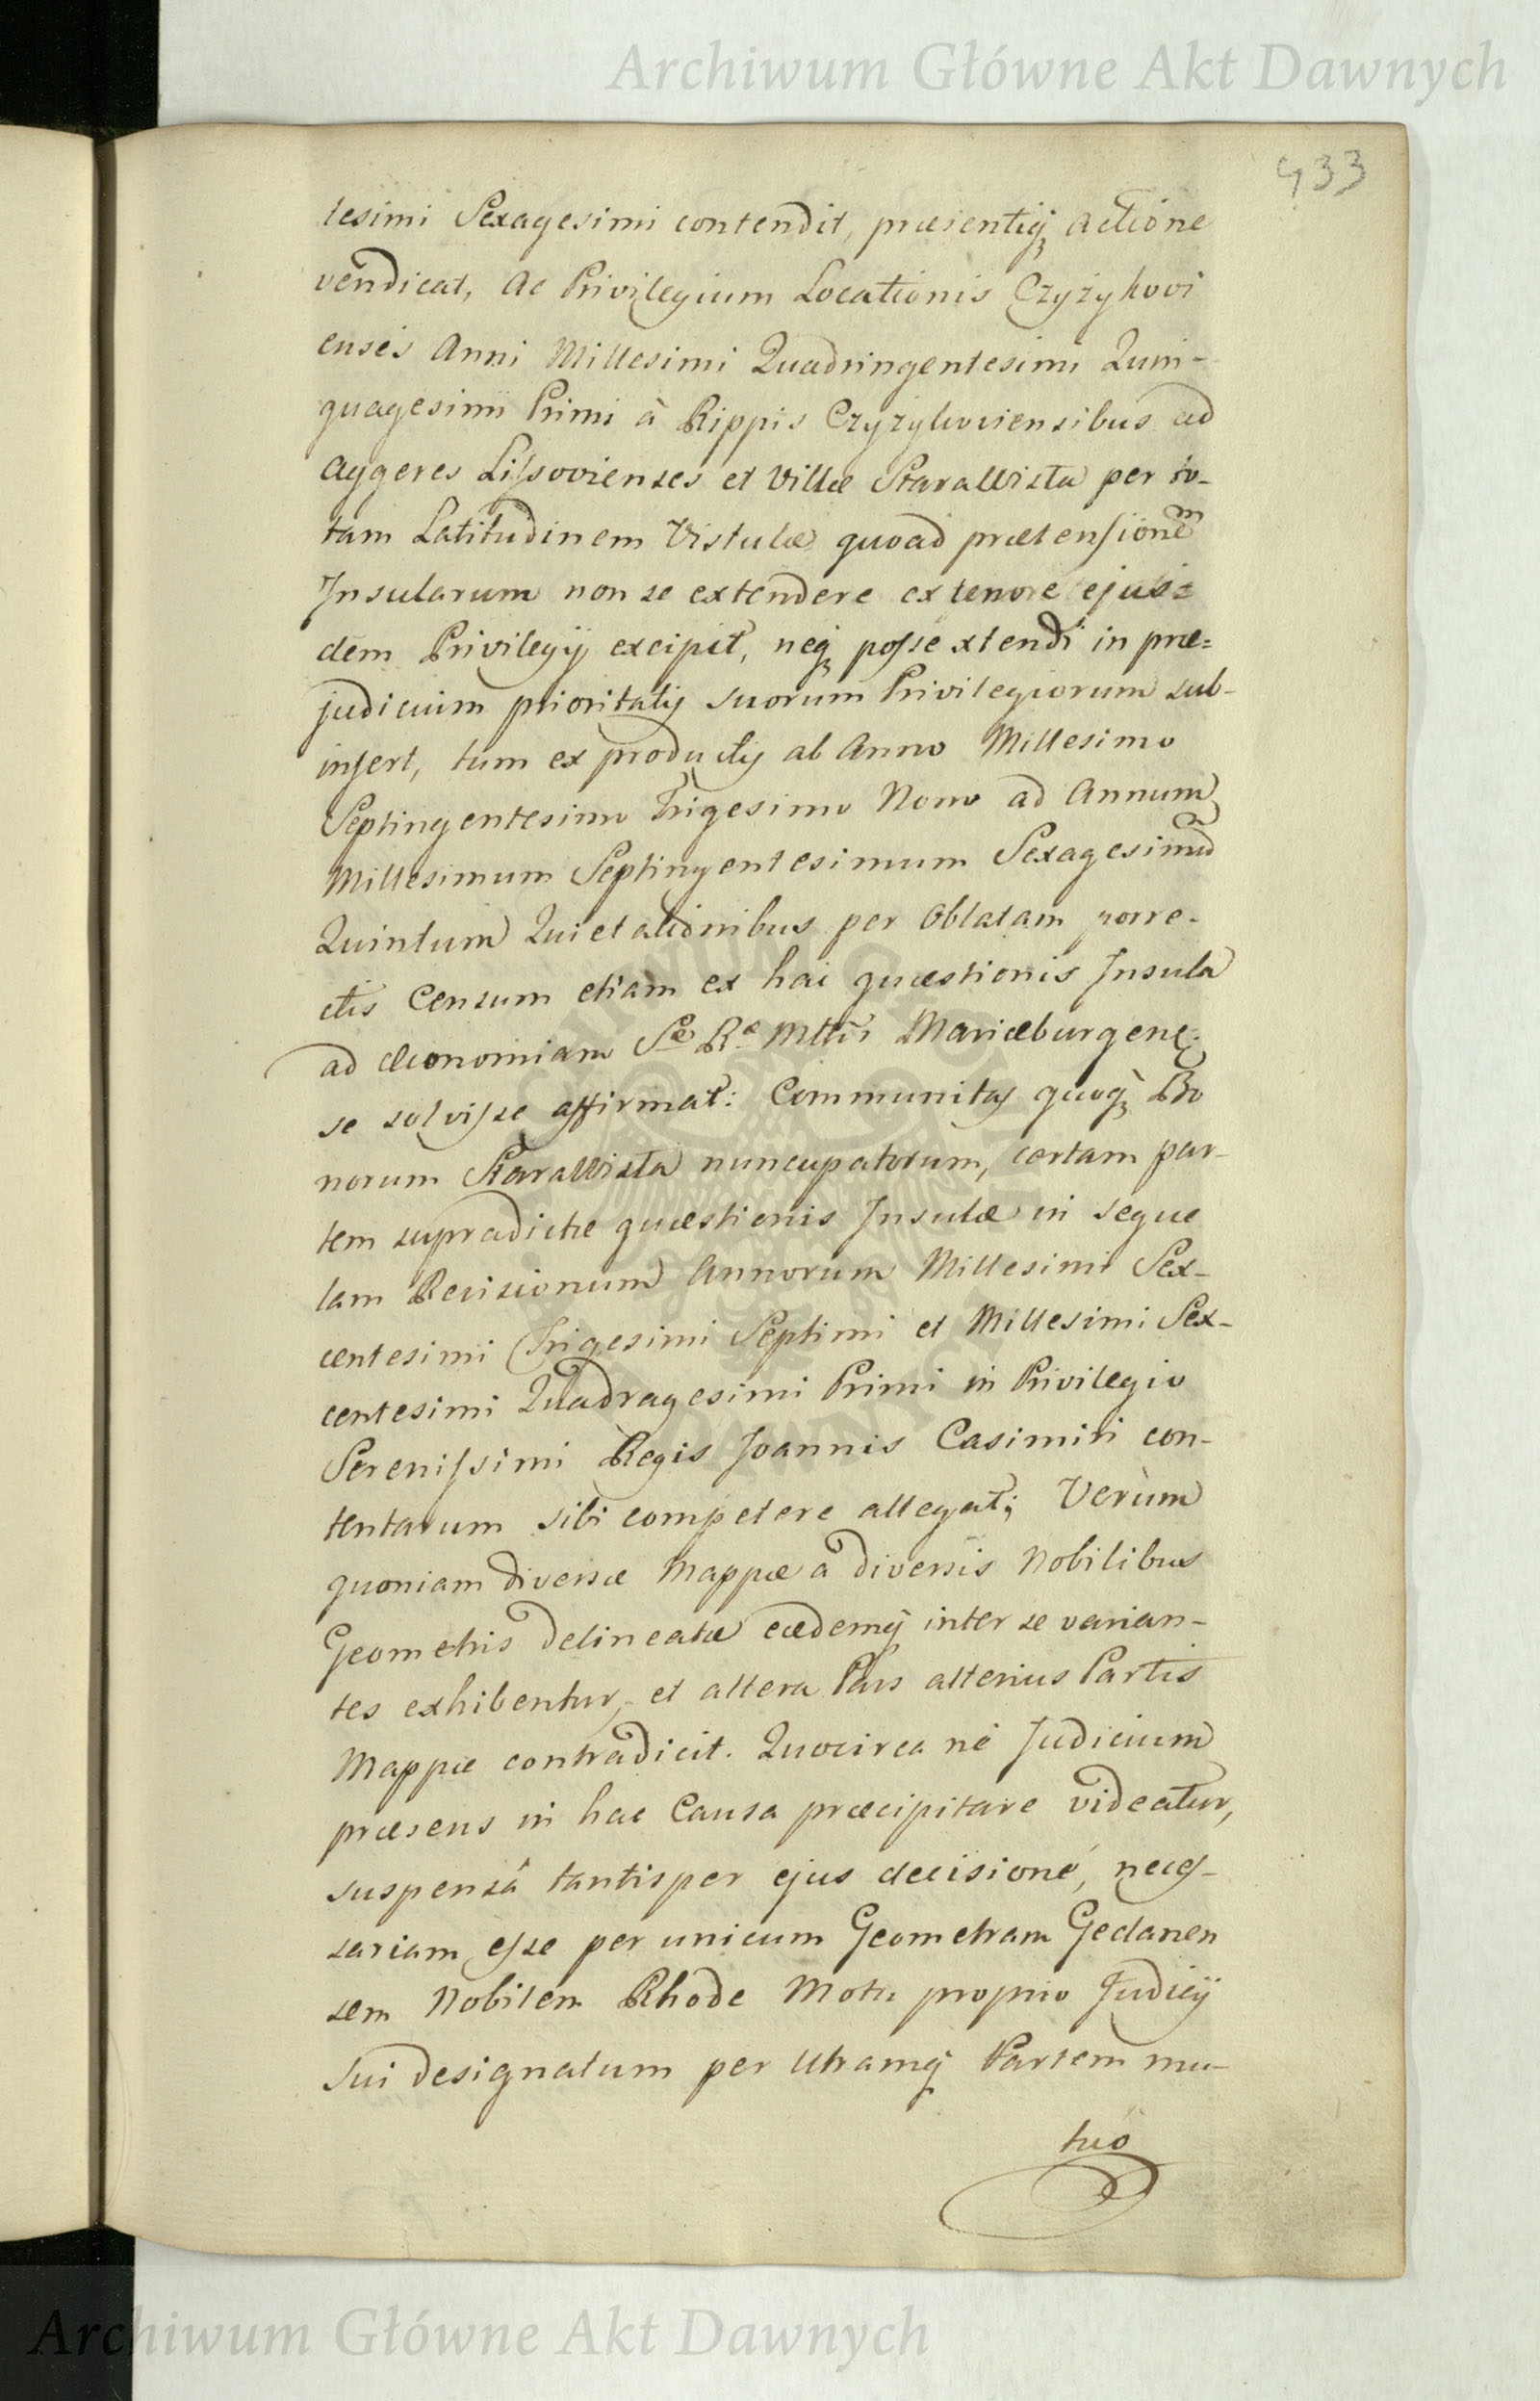 Archiwum Główne Akt Dawnych
433
tesimi Sexagesimi contendit, præsentiq; actione
vendicat, Ac Privilegium Locationis Czyżykovi
ensis Anni Millesimi Quadringentesimi Quin-
quagesimi Primi à Rippis Czyżykoviensibus ad
Aggeres Lissovienses et Villæ StaraWista per to-
tam Latitudinem Vistulæ quoad prætensionem
Insularum non se extendere ex tenore ejus=
dem Privilegij excipit, neq; posse xtendi in præ=
judicium prioritatis suorum Privilegiorum sub-
insert, tum ex productis ab Anno Millesimo
Septingentesimo Trigesimo Nono ad Annum
Millesimum Septingentesimum Sexagesimum
Quintum Quietationibus per Oblatam porre-
ctis Censum etiam ex hac quæstionis Insula
ad Œconomiam Sæ Ræ Mttis Mariæburgen:
se solvisse affirmat: Communitas quoq; Bo
norum StaraWista nuncupatorum, certam par-
tem supradictæ quæstionis Insulæ in seque
lam Revisionum Annorum Millesimi Sex-
centesimi Trigesimi Septimi et Millesimi Sex-
centesimi Quadragesimi Primi in Privilegio
Serenissimi Regis Joannis Casimiri con-
tentarum sibi competere allegat; Verùm
quoniam diversæ Mappæ a diversis Nobilibus
Geometris delineatæ eædemq; inter se varian-
tes exhibentur, et altera Pars alterius Partis
Mappæ contradicit. Quocirca nè Judicium
præsens in hac Causa præcipitare videatur,
suspensâ tantisper ejus decisione, neces-
sariam esse per unicum Geometram Gedanen
sem Nobilem Rhode Motu proprio Judicij
sui designatum per Utramq; Partem mu-
tuo
Archiwum Główne Akt Dawnych